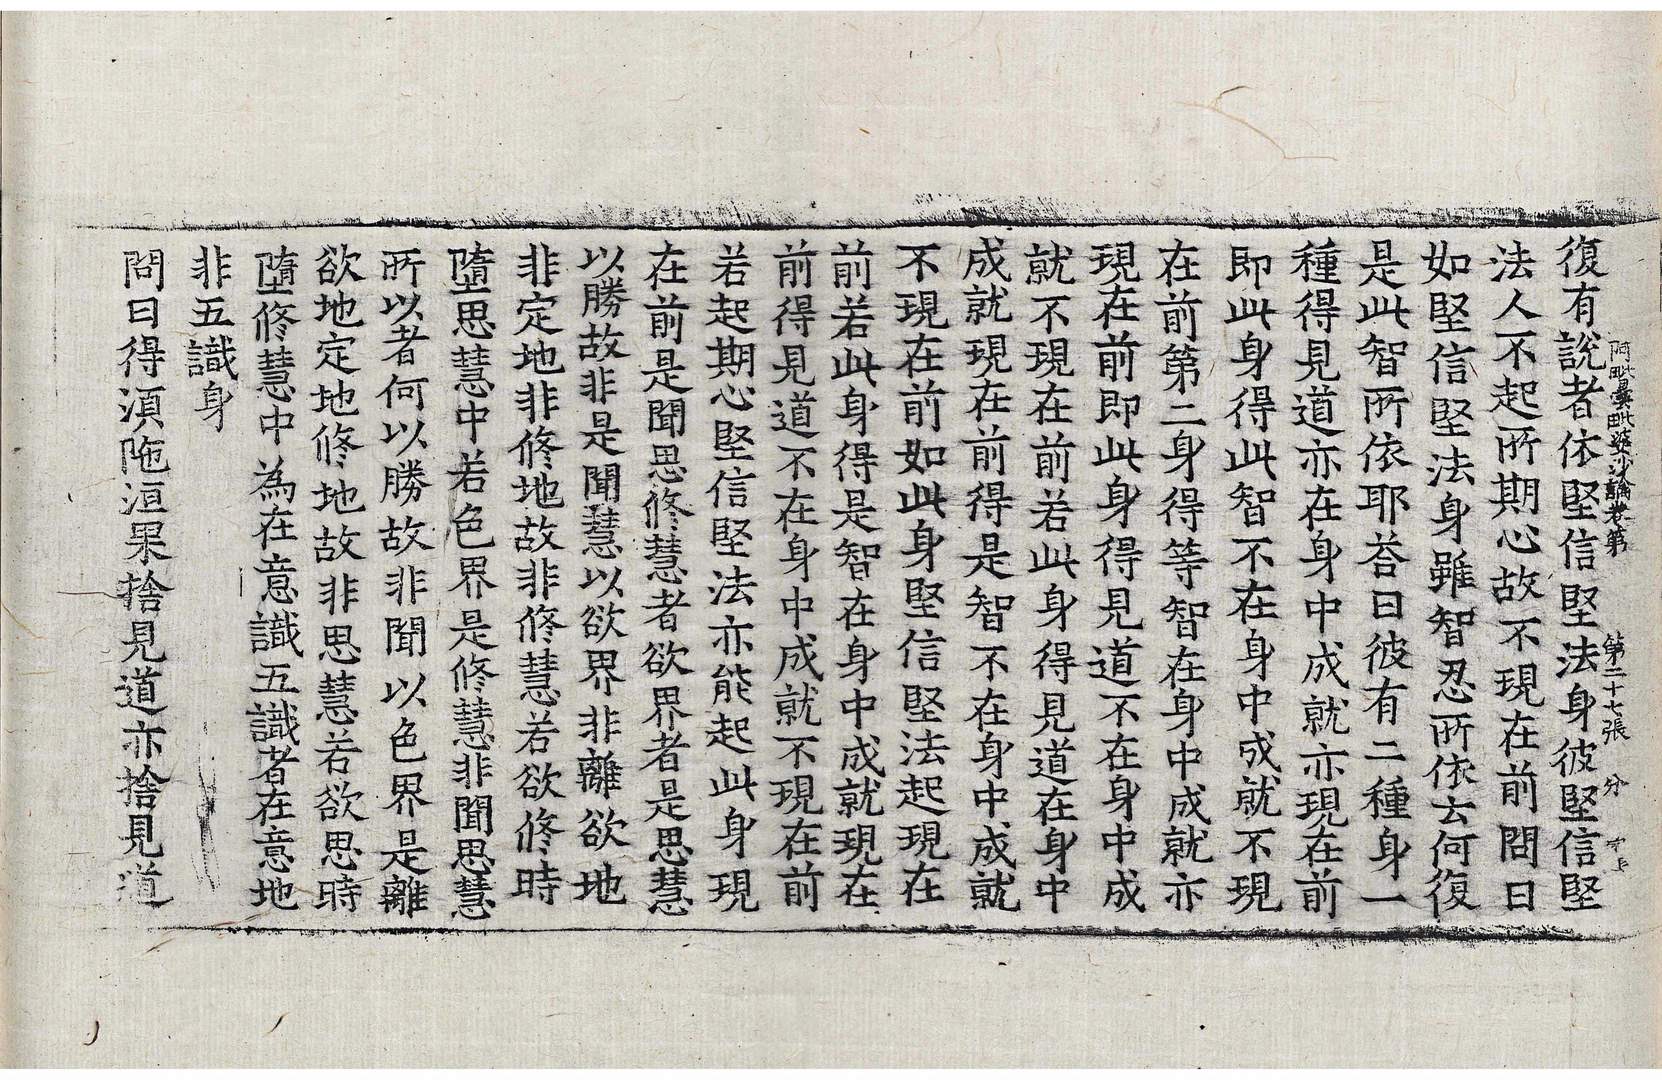 阿毗曇毗婆沙論卷第 第二十七張 分
復有說者依堅信堅法身彼堅信堅
法人不起所期心故不現在前問曰
如堅信堅法身雖智忍所依云何復
是此智所依耶荅曰彼有二種身一
種得見道亦在身中成就亦現在前
即此身得此智不在身中成就不現
在前第二身得等智在身中成就亦
現在前即此身得見道不在身中成
就不現在前若此身得見道在身中
成就現在前得是智不在身中成就
不現在前如此身堅信堅法起現在
前若此身得是智在身中成就現在
前得見道不在身中成就不現在前
若起期心堅信堅法亦能起此身現
在前是聞思修慧者欲界者是思慧
以勝故非是聞慧以欲界非離欲地
非定地非修地故非修慧若欲修時
墮思慧中若色界是修慧非聞思慧
所以者何以勝故非聞以色界是離
欲地定地修地故非思慧若欲思時
墮修慧中為在意識五識者在意地
非五識身
問曰得須陁洹果捨見道亦捨見道